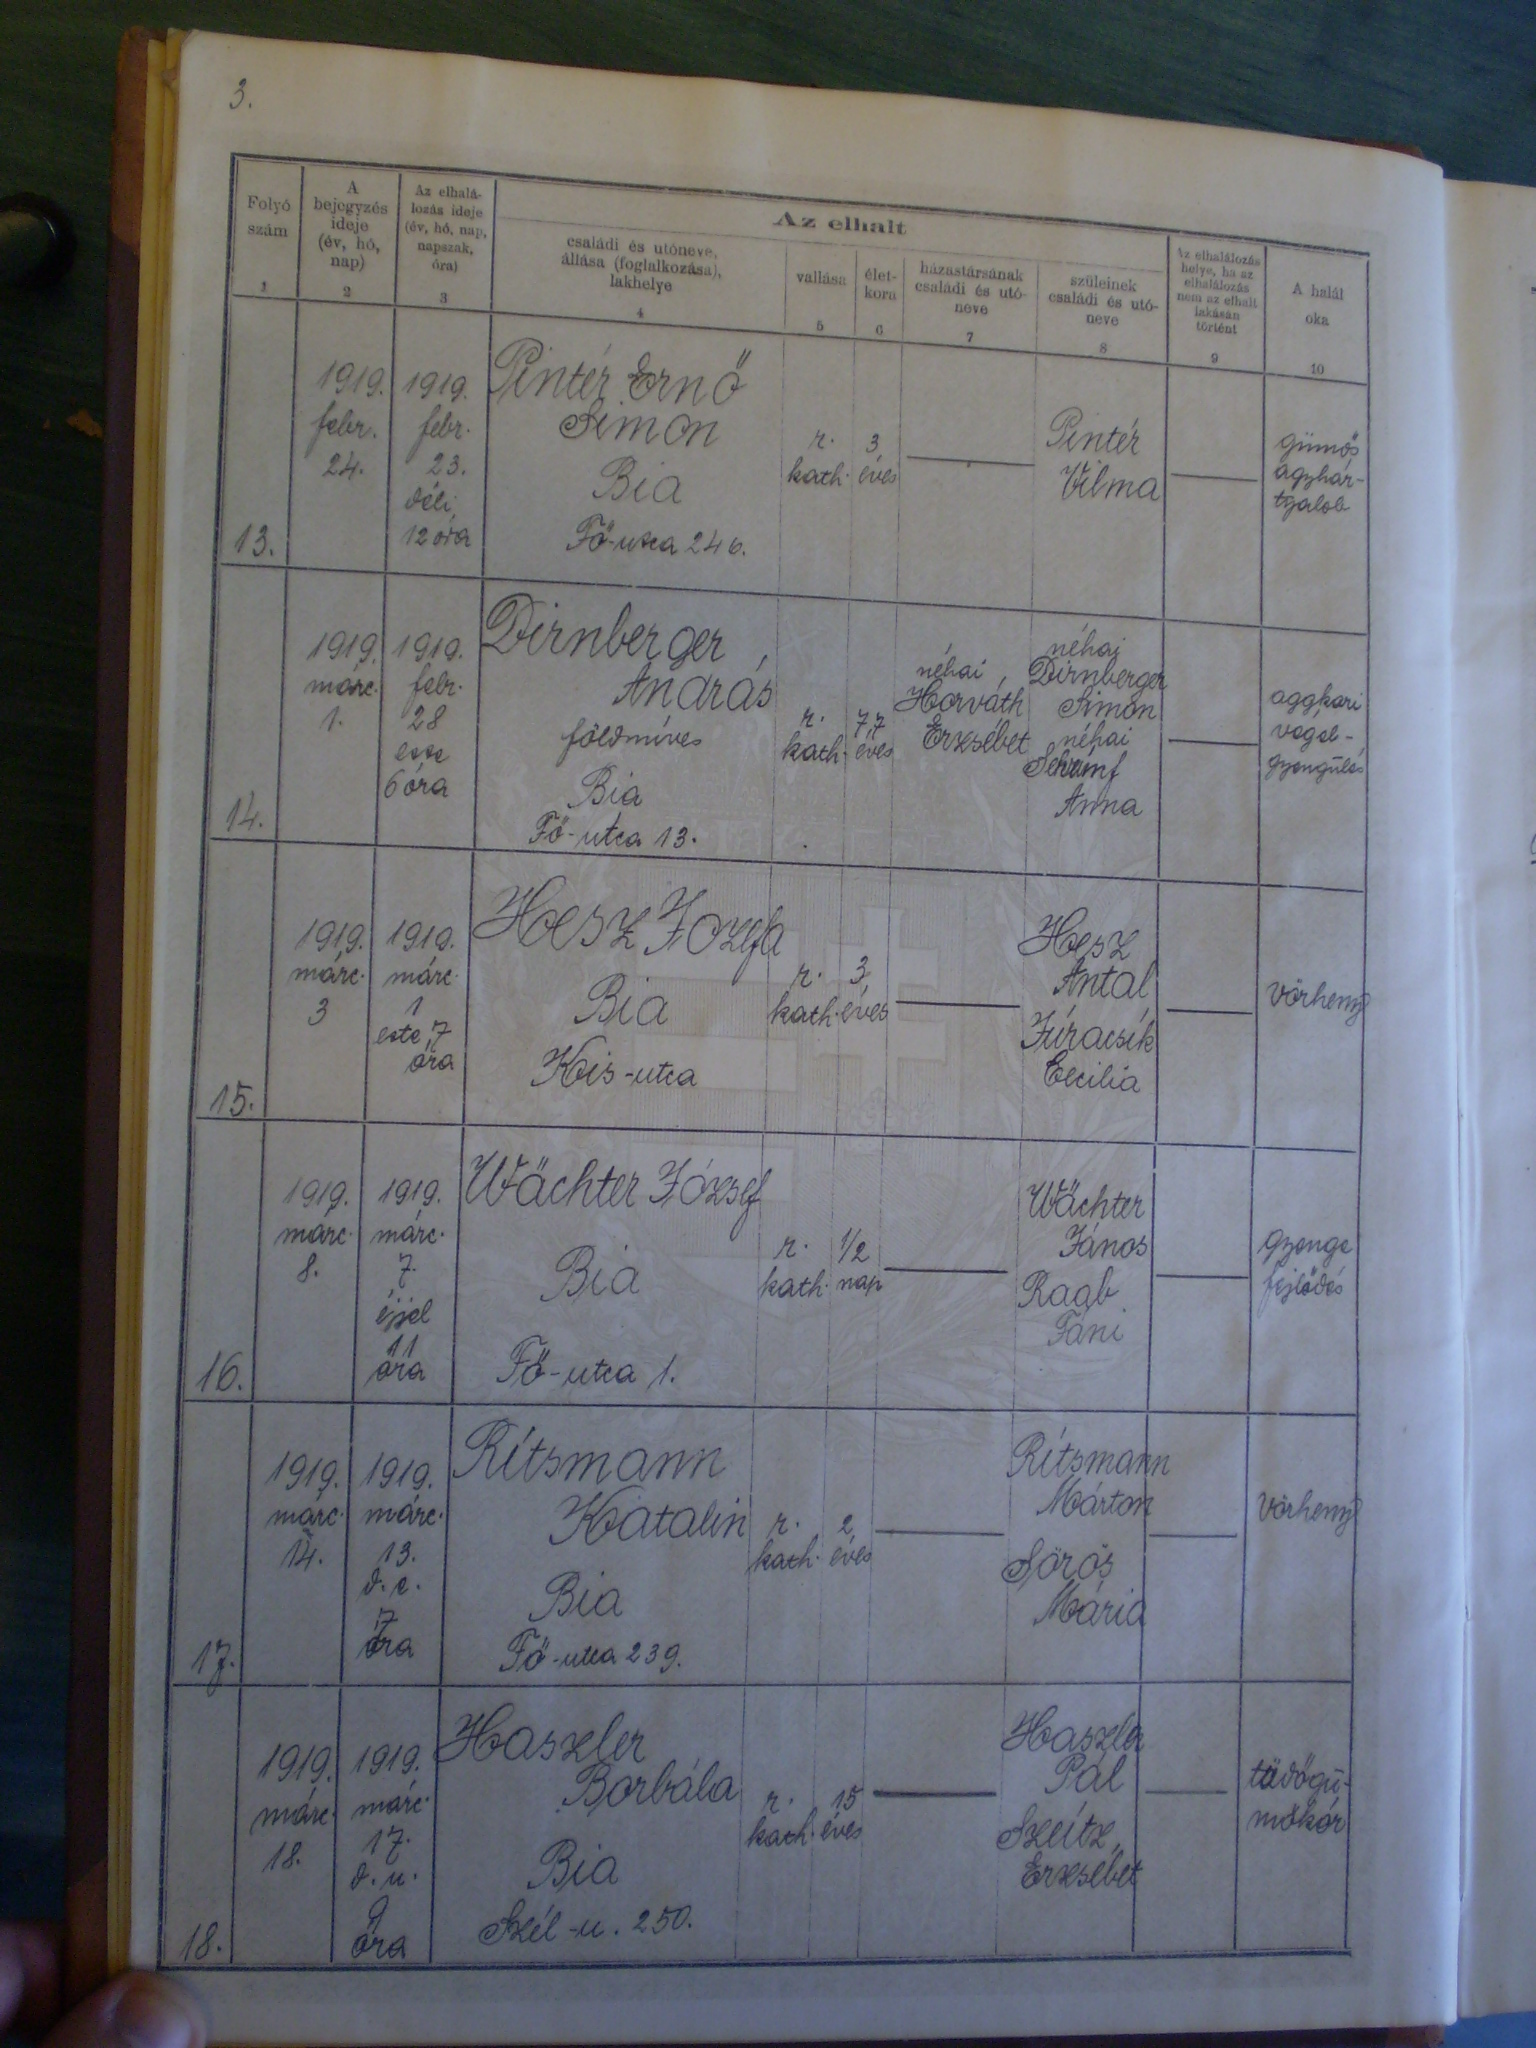 3.
Az elhalt
Folyó
szám
1
A
bejegyzés
ideje
(év, hó,
nap)
2
Az elhalá-
lozás ideje
(év, hó, nap,
napszak,
óra)
3
családi és utóneve,
állása (foglalkozása),
lakhelye
4
vallása
5
élet-
kora
6
házastársának
családi és utó-
neve
7
szüleinek
családi és utó-
neve
8
Az elhalálozás
helye, ha az
elhalálozás
nem az elhalt
lakásán
történt
9
A halál
oka
10
13.
1919.
febr.
24.
1919.
febr.
23.
déli
12 óra
Pintér Ernő
Simon
Bia
Fő-utca 246.
r.
kath.
3
éves
Pintér
Vilma
gümős
agyhár-
tyalob
14.
1919.
márc.
1.
1919.
febr.
28
este
6 óra
Dirnberger
András
földmíves
Bia
Fő-utca 13.
r.
kath.
77
éves
néhai
Horváth
Erzsébet
néhai
Dirnberger
Simon
néhai
Anna
aggkori
végel-
gyengülés
15.
1919.
márc.
3
1919.
márc.
1
este 7
óra
Hesz Jozefa
Bia
Kis-utca
r.
kath.
3
éves
Hesz
Antal
Juracsik
Cecilia
vörheny
16.
1919.
márc.
8.
1919.
márc.
7.
éjjel
11
óra
Wächter József
Bia
Fő-utca 1.
r.
kath.
1/2
nap
Wächter
János
Raab
Fáni
gyenge
fejlődés
17.
1919.
márc.
14.
1919.
márc.
13.
d. e.
7
óra
Ritsmann
Katalin
Bia
Fő-utca 239.
r.
kath.
2
éves
Ritsmann
Márton
Sörös
Mária
vörheny
18.
1919.
márc.
18.
1919.
márc.
17.
d. u.
9
óra
Haszler
Borbála
Bia
Szél-u. 250.
r.
kath.
15
éves
Haszler
Pál
Szeitz
Erzsébet
tüdőgü-
mőkór